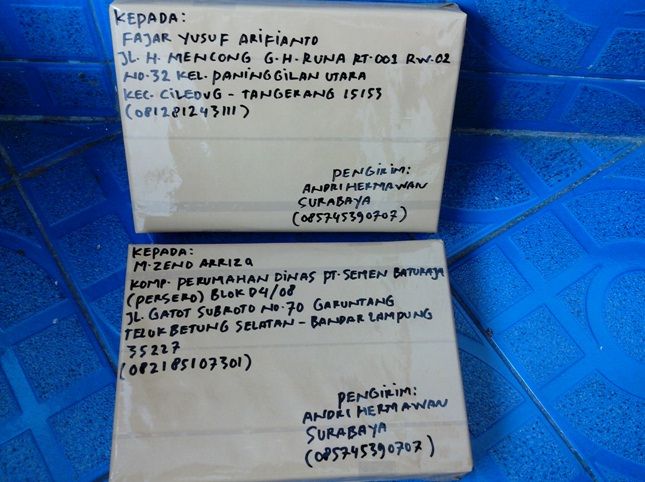 KEPADA:
FAJAR YUSUF ARIFIANTO
JL. H. MENCONG G.H. RUNA RT.003 RW.02
NO.32 KEL. PANINGGILAN UTARA
KEC. CILEDUG - TANGERANG 15153
(081281243111)
PENGIRIM:
ANDRI HERMAWAN
SURABAYA
(085745390707)
KEPADA:
M. ZEND ARRIZA
KOMP. PERUMAHAN DINAS PT. SEMEN BATURAJA
(PERSERO) BLOK D4/08
JL. GATOT SUBROTO NO.70 GARUNTANG
TELUK BETUNG SELATAN - BANDAR LAMPUNG
35227
(082185107301)
PENGIRIM:
ANDRI HERMAWAN
SURABAYA
(085745390707)